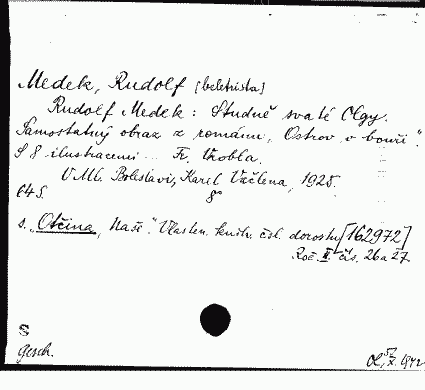 Medek, Rudolf [beletrista]
Rudolf Medek: Studně svaté Olgy.
Samostatný obraz z románu „Ostrov v bouři".
S 8 ilustracemi ... Fr. Vrobla.
V Ml. Boleslavi, Karel Vačlena, 1925.
64 S. 8°
s. „Otčina, Naše". Vlasten. knih. čsl. dorostu [162972]
Roč. II. čís. 26 a 27
S
gesch.
1942